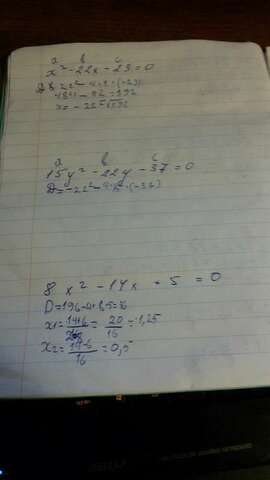 a b c
x² - 22x - 23 = 0
484 - 92 = 392
a b c
15y² - 22y - 37 = 0
D = -22² - 4·15·(-37)
8x² - 14x + 5 = 0
D = 196 - 4·8·5 = 36
x₁ = 14+6 / 16 = 20 / 16 = 1,25
x₂ = 14-6 / 16 = 0,5